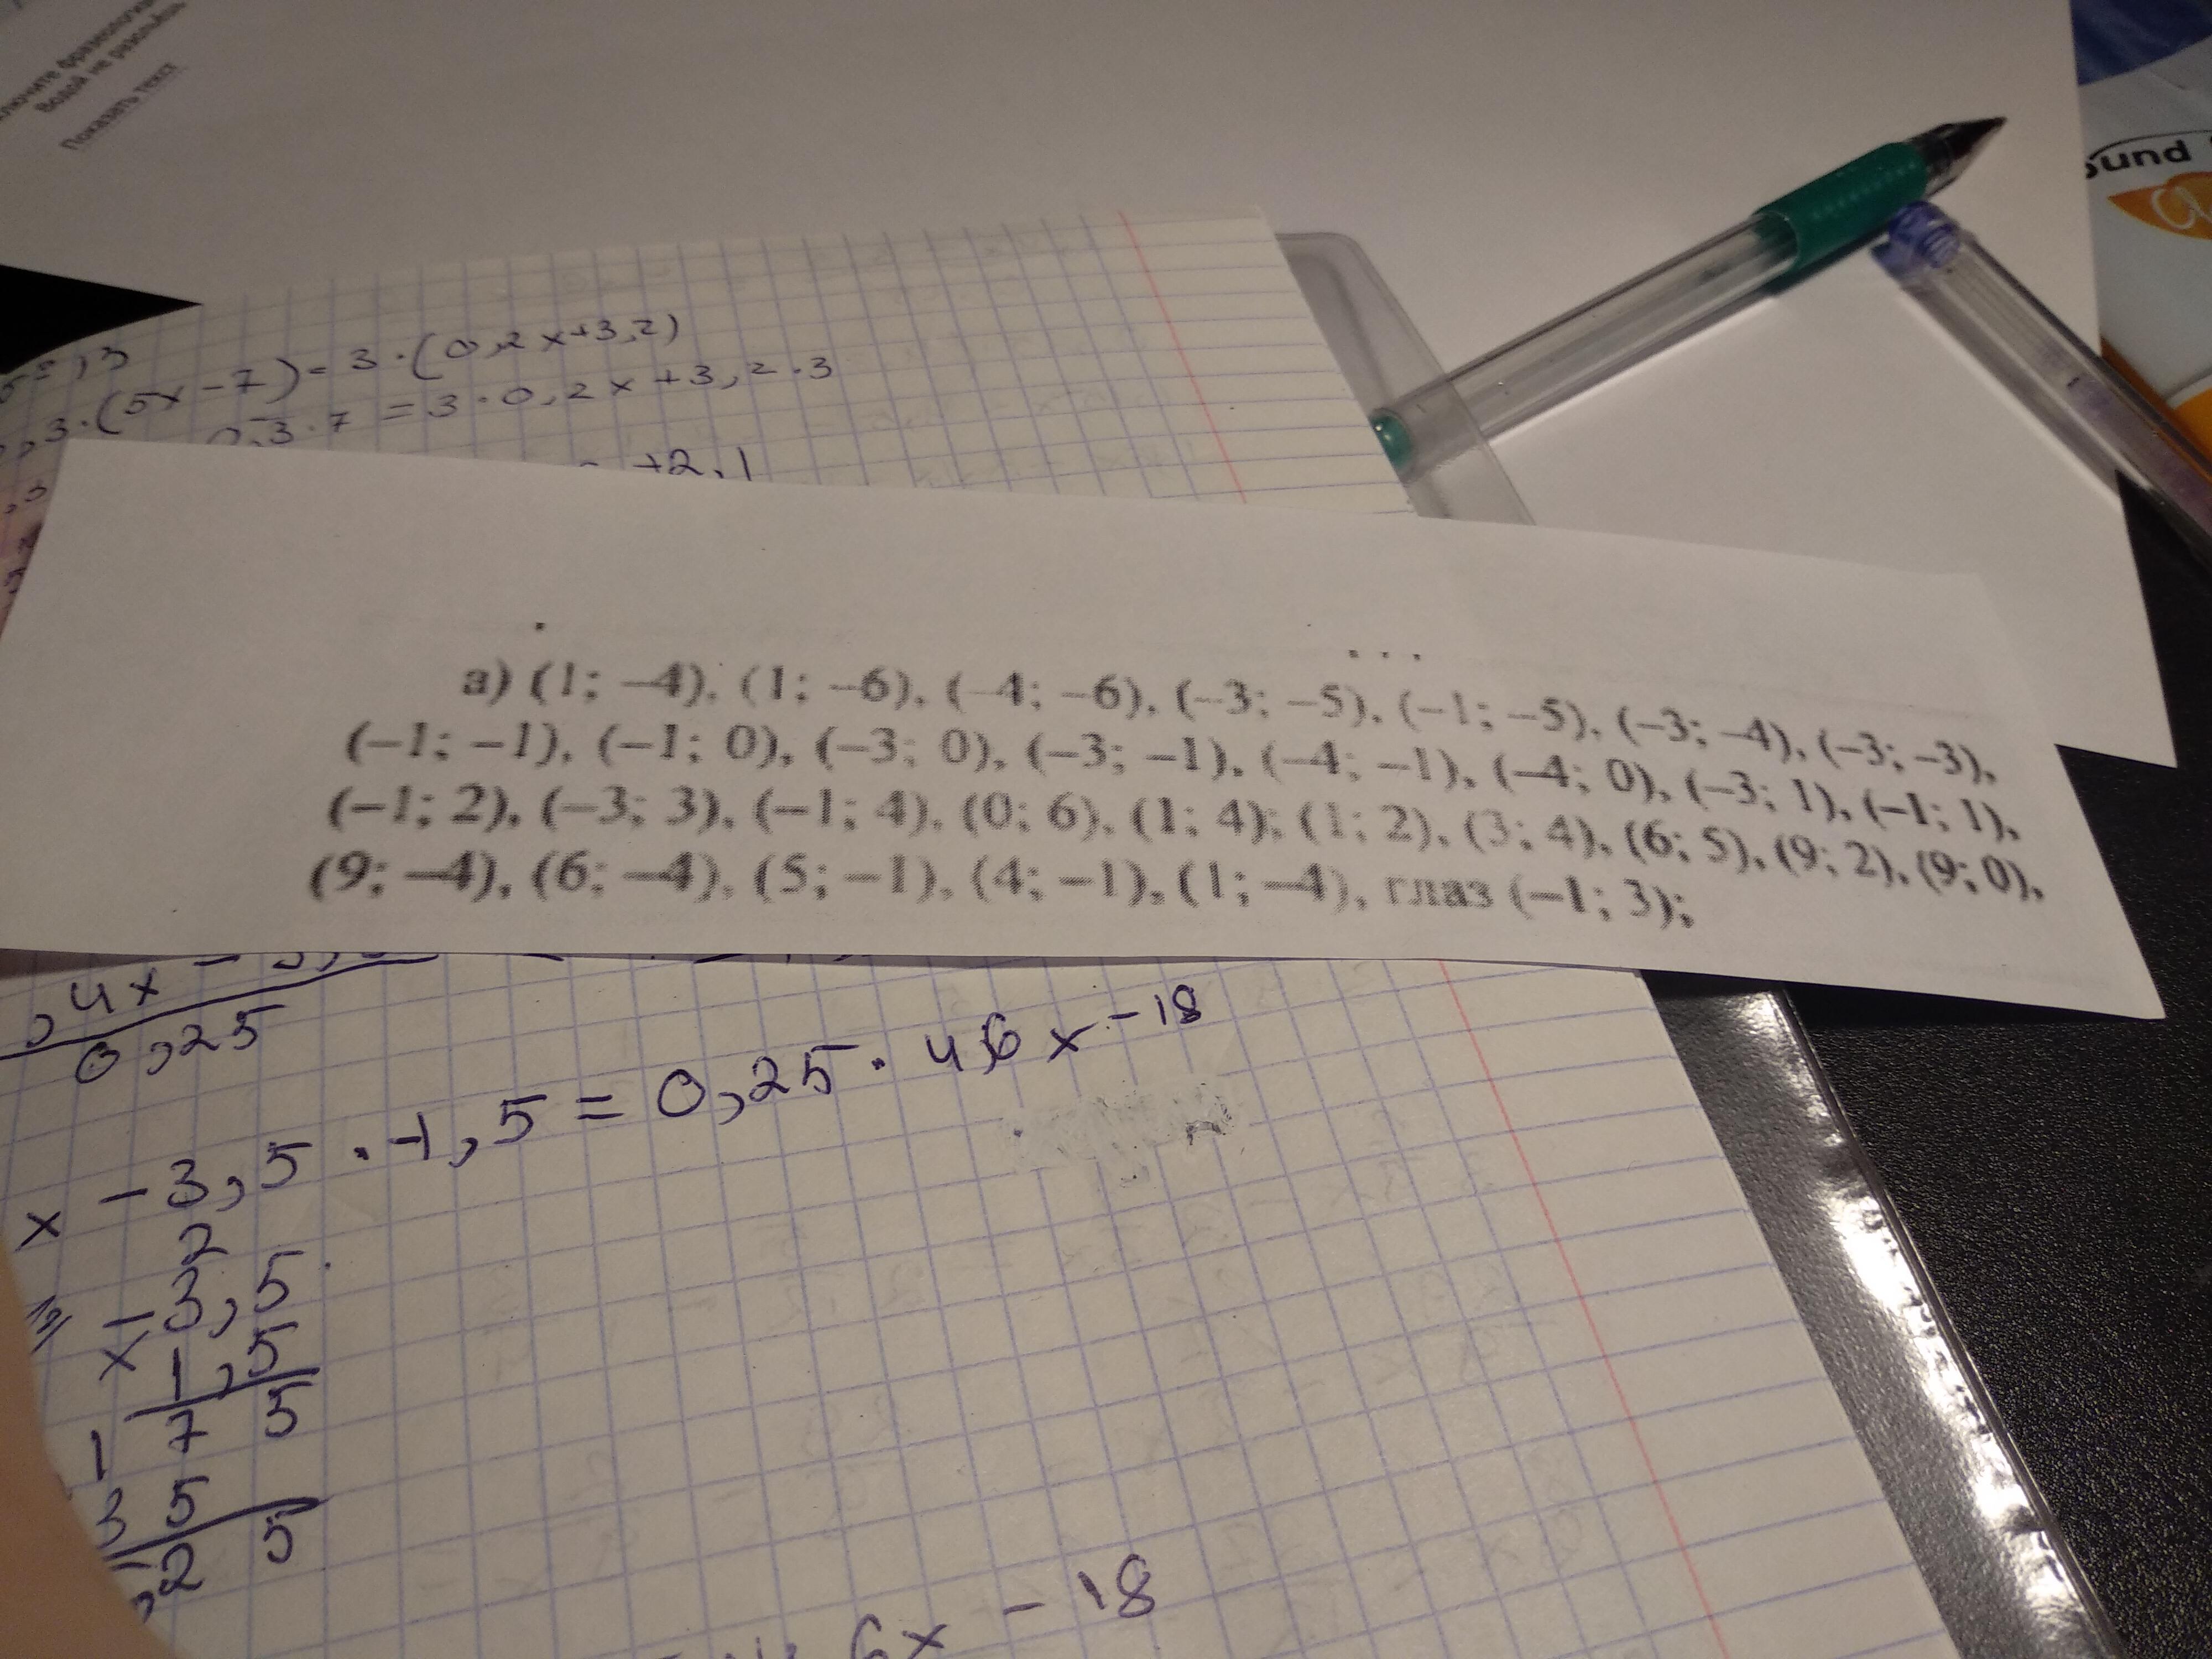 Водой не разольёшь
Показать текст
ound
3·(5x−7)=3·(0,2x+3,2)
0,3·7=3·0,2x+3,2·3
+2,1
а) (1; −4), (1; −6), (−4; −6), (−3; −5), (−1; −5), (−3; −4), (−3; −3),
(−1; −1), (−1; 0), (−3; 0), (−3; −1), (−4; −1), (−4; 0), (−3; 1), (−1; 1),
(−1; 2), (−3; 3), (−1; 4), (0; 6), (1; 4); (1; 2), (3; 4), (6; 5), (9; 2), (9; 0),
(9; −4), (6; −4), (5; −1), (4; −1), (1; −4), глаз (−1; 3);
,4x
0,25
x −3,5·1,5=0,25·4,6x−18
2
×−3,5
1,5
1 7 5
3 5
,2 5
6x − 18